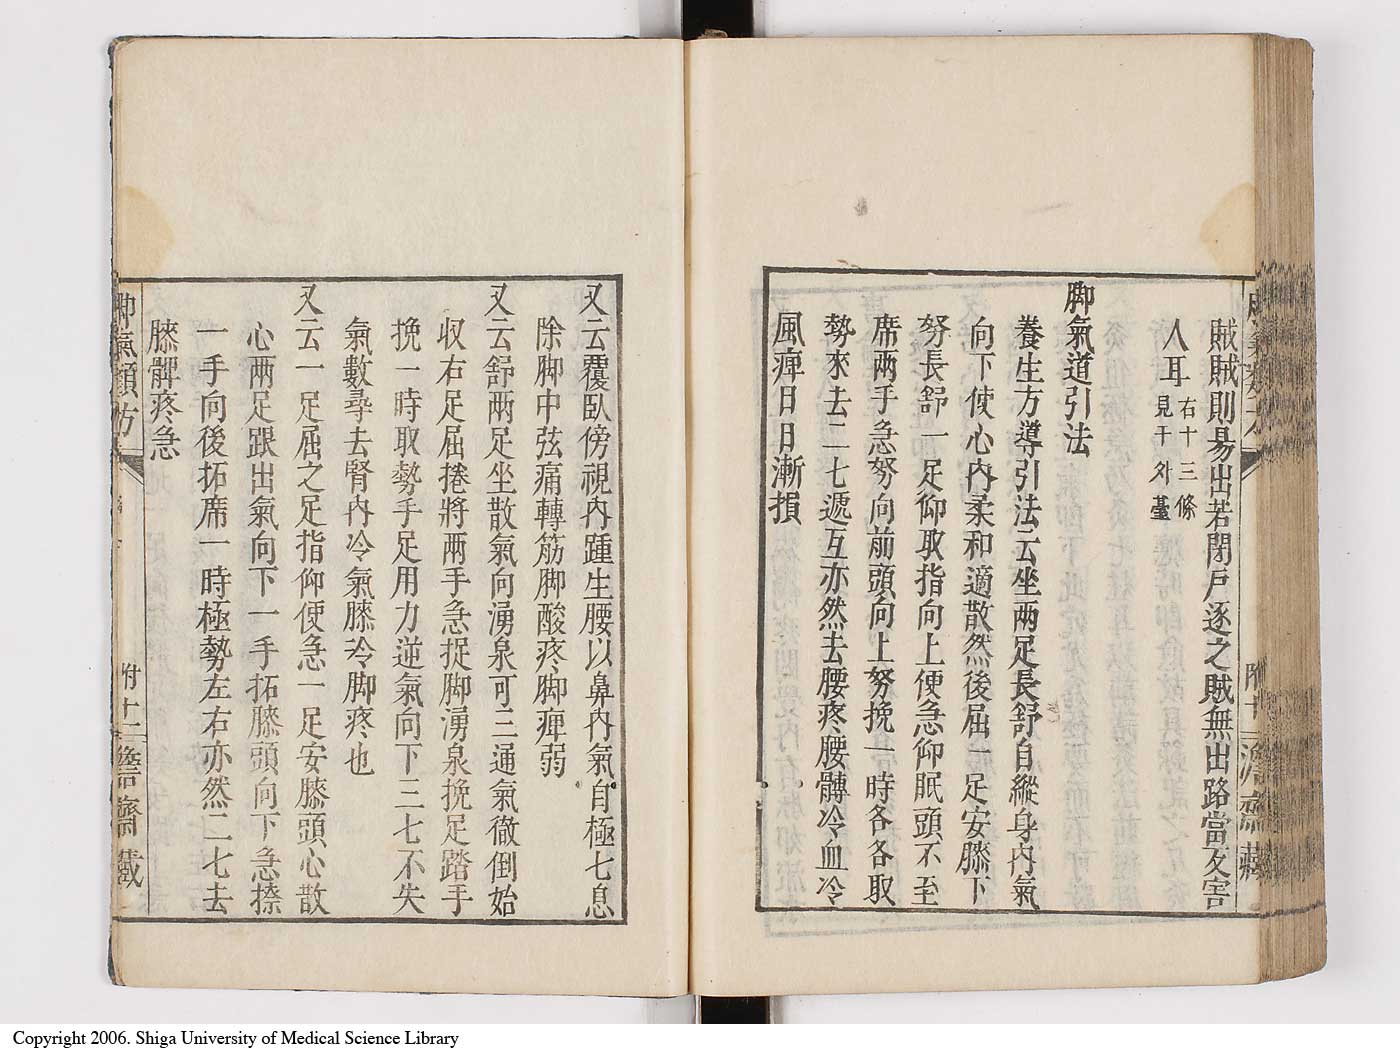 賊賊則易出若閉戶逐之賊無出路當反害
人耳右十三條見于外臺
脚氣道引法
養生方導引法云坐兩足長舒自縱身內氣
向下使心內柔和適散然後屈一足安膝下
努長舒一足仰取指向上便急仰眠頭不至
席兩手急努向前頭向上努挽一時各各取
勢來去二七遞互亦然去腰疼腰髆冷血冷
風痺日日漸損
又云覆臥傍視內踵生腰以鼻內氣自極七息
除脚中弦痛轉筋脚酸疼脚痺弱
又云舒兩足坐散氣向湧泉可三通氣徹倒始
收右足屈捲將兩手急捉脚湧泉挽足踏手
挽一時取勢手足用力逆氣向下三七不失
氣數尋去腎內冷氣膝冷脚疼也
又云一足屈之足指仰使急一足安膝頭心散
心兩足跟出氣向下一手拓膝頭向下急捺
一手向後拓席一時極勢左右亦然二七去
膝髀疼急
脚氣類方
附十二
詹齋藏
Copyright 2006. Shiga University of Medical Science Library